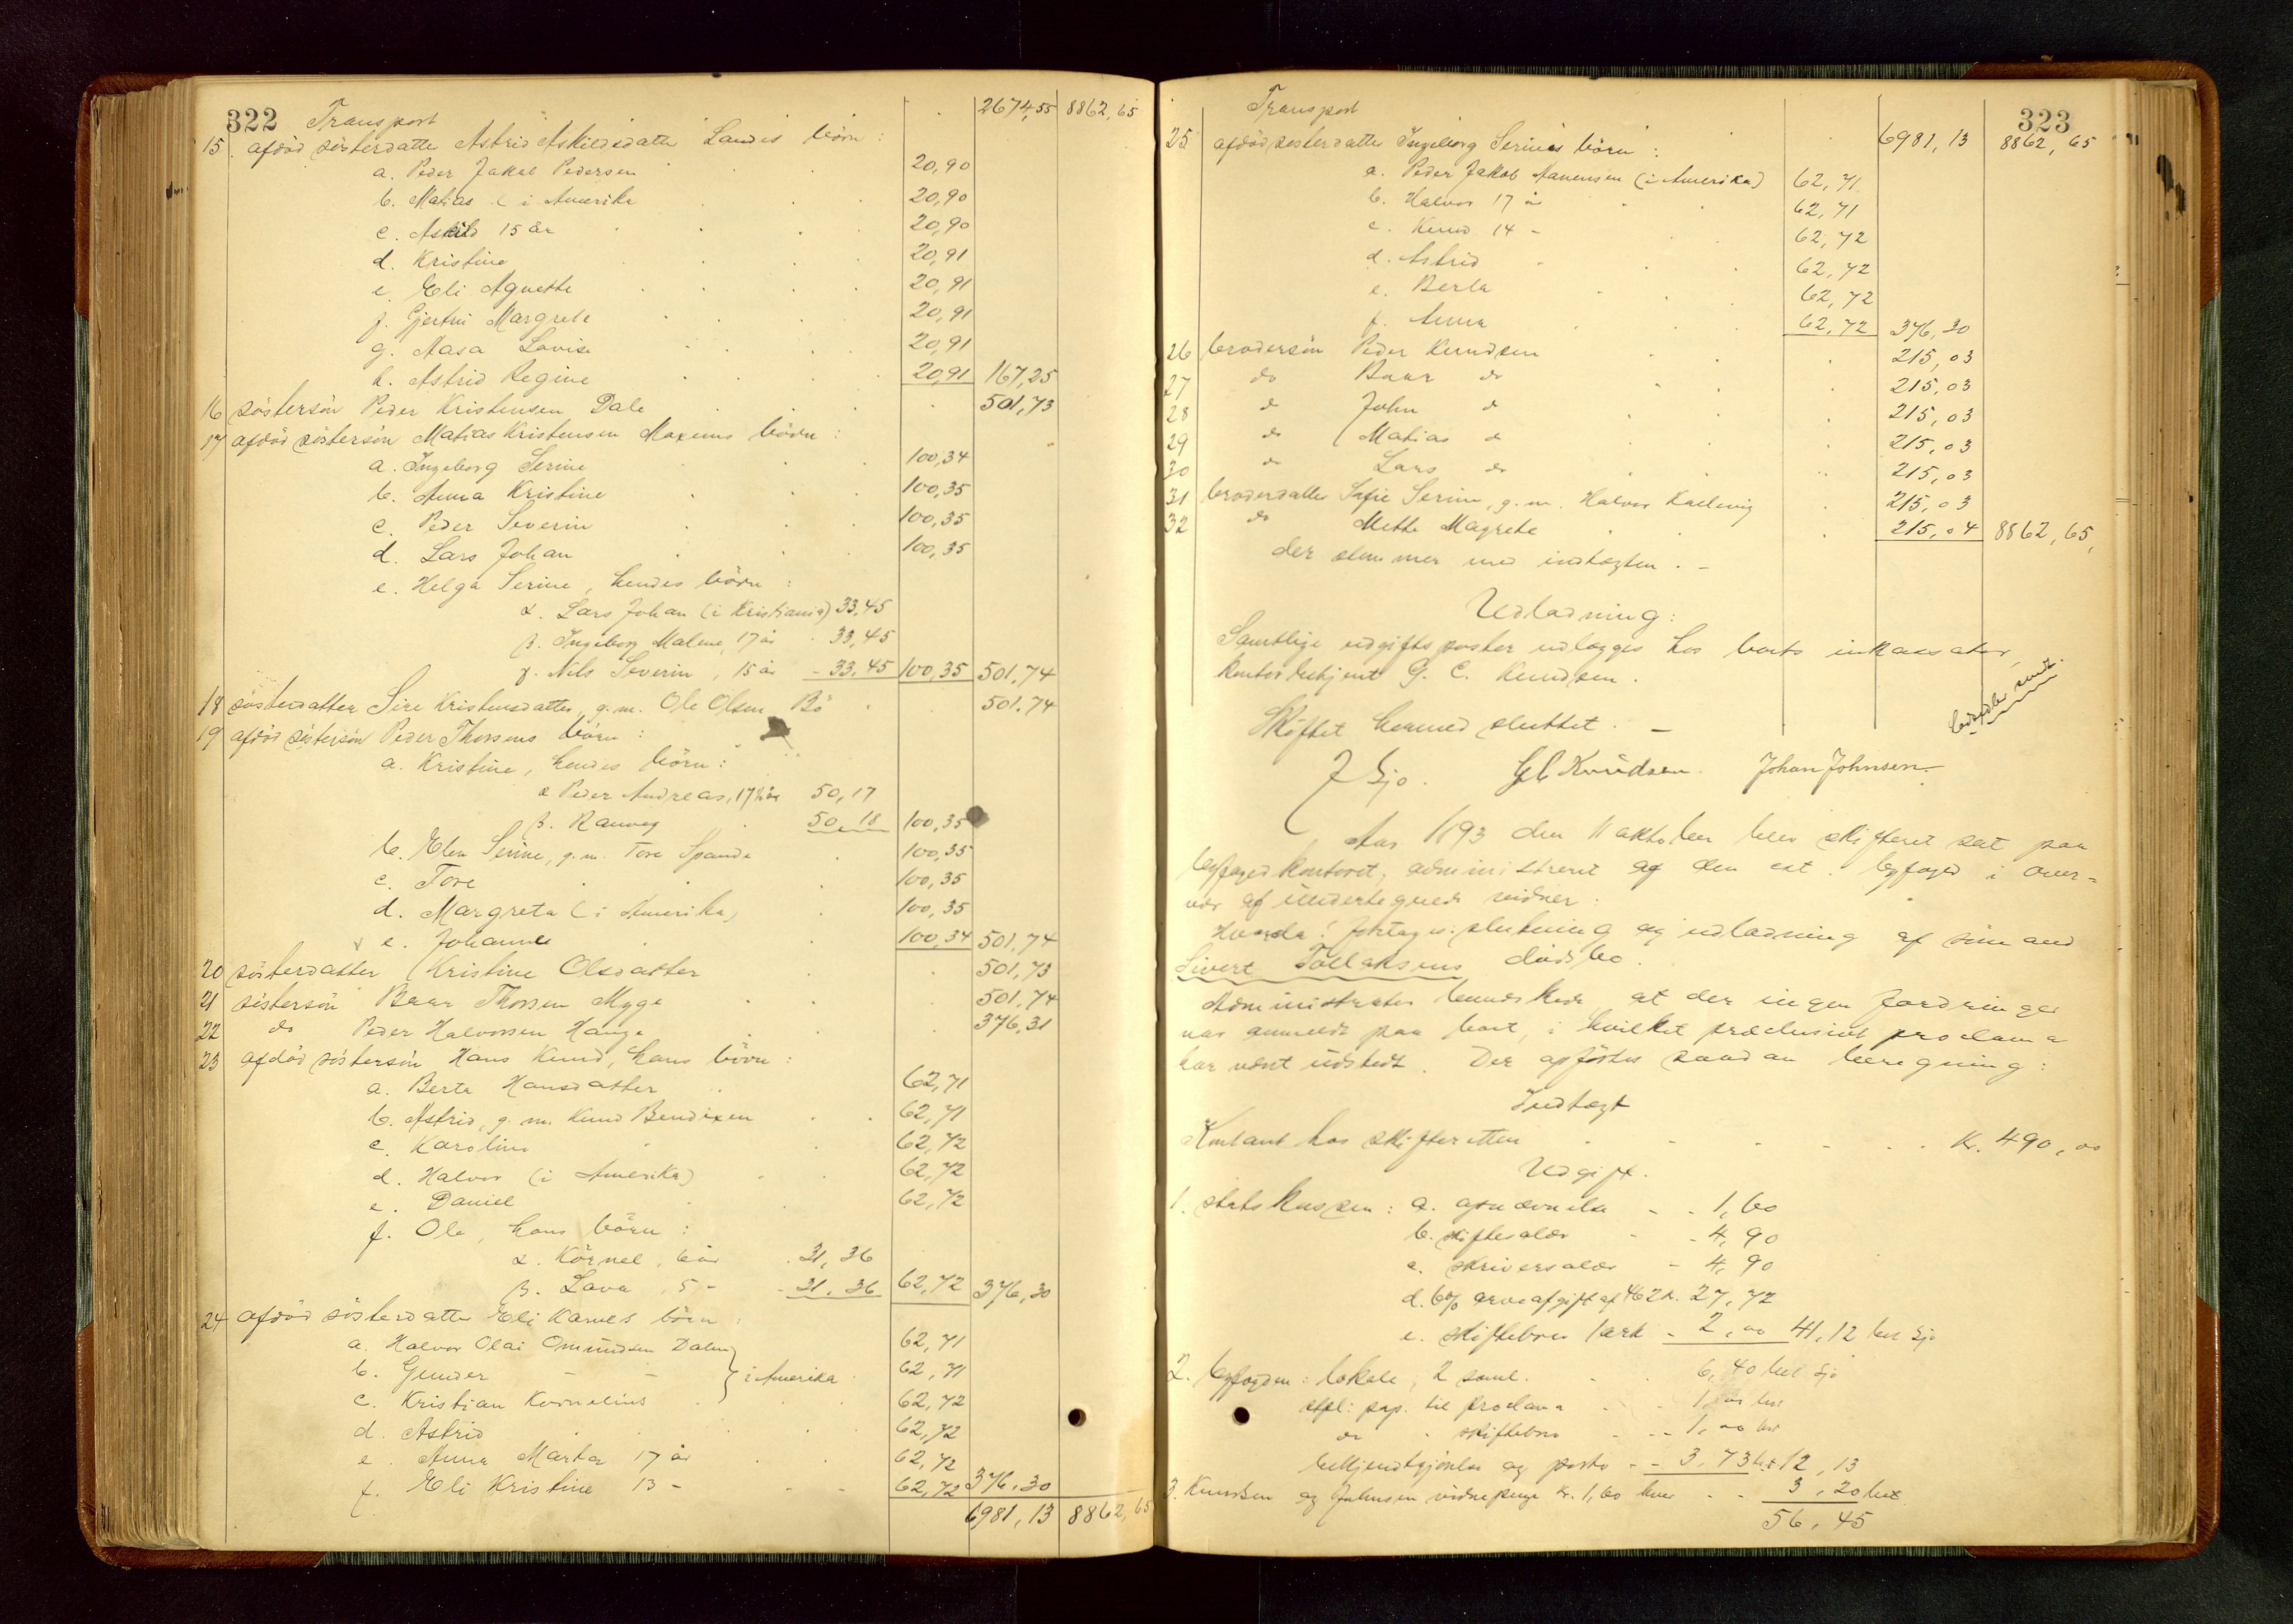 322 Transport 2674,55 8862,65
15. afdöd sösterdatter Astrid Askildsdatter Landes börn:
a. Peder Jakob Pedersen 20,90
b. Matias (i Amerika 20,90
c. Askild 15 år 20,90
d. Kristine 20,91
e. Eli Agnethe 20,91
f. Gjertru Margrete 20,91
g. Aasa Lovise 20,91
h. Astrid Regine 20,91 167,25
16 söstersön Peder Kristensen Dale 501,73
17 afdöd söstersön Matias Kristensen Moxems börn:
a. Ingeborg Serine 100,34
b. Anna Kristine 100,35
c. Peder Severin 100,35
d. Lars Johan 100,35
e. Helga Serine, hendes börn:
α. Lars Johan (i Kristiania) 33,45
β. Ingeborg Malene, 17 år 33,45
γ. Nils Severin, 15 år - 33,45 100,35 501,74
18 sösterdatter Sire Kristensdatter, g.m. Ole Olsen Bö 501,74
19 afdöd söstersön Peder Thorsens börn:
a. Kristine, hendes börn:
α Peder Andreas, 17½ år 50,17
β. Ranveg 50,18 100,35
b. Elen Serine, g.m. Tore Spande 100,35
c. Tore 100,35
d. Margreta (i Amerika) 100,35
e. Johannes 100,34 501,74
20 sösterdatter Kristine Olsdatter 501,73
21 söstersön Baar Thorsen Myge 501,74
22 do Peder Halvorsen Hauge 376,31
23 afdöd söstersön Hans Knud, hans börn:
a. Berta Hansdatter 62,71
b. Astrid, g.m. Knud Bendixen 62,71
c. Karoline 62,72
d. Halvor (i Amerika) 62,72
e. Daniel 62,72
f. Ole, hans börn:
α. Körnel, 6 år 31,36
β. Lava, 5 - 31,36 62,72 376,30
24 afdöd sösterdatter Eli Karnes börn:
a. Halvor Olai Omundsen Dalen 62,71
b. Gunder - - } i Amerika 62,71
c. Kristian Kornelius 62,72
d. Astrid 62,72
e. Anna Marta 17 år 62,72
f. Eli Kristine 13 - 62,72 376,30
6981,13 8862,65
Transport 323
25 afdöd sösterdatter Ingeborg Serines börn: 6981,13 8862,65
a. Peder Jakob Aanensen (i Amerika) 62,71
b. Halvor 17 år 62,71
c. Knud 14 - 62,72
d. Astrid 62,72
e. Berta 62,72
f. Anna 62,72 376,30
26 brodersön Peder Knudsen 215,03
27 do Baar do 215,03
28 do John do 215,03
29 do Matias do 215,03
30 do Lars do 215,03
31 broderdatter Sofie Serine, g.m. Halvor Kallevig 215,03
32 do Mette Magrete 215,04 8862,65,
der stemmer med indtægten. -
Udlodning:
Samtlige udgiftsposter udlægges hos boets inkassator,
kontorbetjent G. C. Knudsen.
Skiftet hermed sluttet. -
Sjo. GC Knudsen. Johan Johnsen.
Aar 1893 den 11 oktober blev skifteret sat paa
byfogedkontoret, administreret af den cst. byfoged i over-
vær af undertegnede vidner.
Hvorda: foretages slutning og udlodning af sömand
Sivert Tollaksens dödsbo.
Administrator bemærkede at der ingen fordringer
var anmeldt paa boet, i hvilket præclusivt proclama
har været udstedt. Der opförtes saadan beregning:
Indtægt
Kontant hos skifteretten Kr. 490,00
Udgift.
1. statskassen: a. opnævnelse - - 1,60
b. skiftesalær - 4,90
c. skriversalær - 4,90
d. 6% arveafgift af 462 kr. 27,72
e. skiftebrev 1 ark - 2,00 41,12 bet Sjo
2. byfogden: lokale, 2 saml. 6,40 bet Sjo
stpl: pap. til proclama 1,00 bet
do - skiftebrev - 1,00 bet
bekjendtgjörelse og porto - - 3,73 bet 12,13
3. Knudsen og Johnsen vidnepenge kr. 1,60 hver - - 3,20 bet
56,45